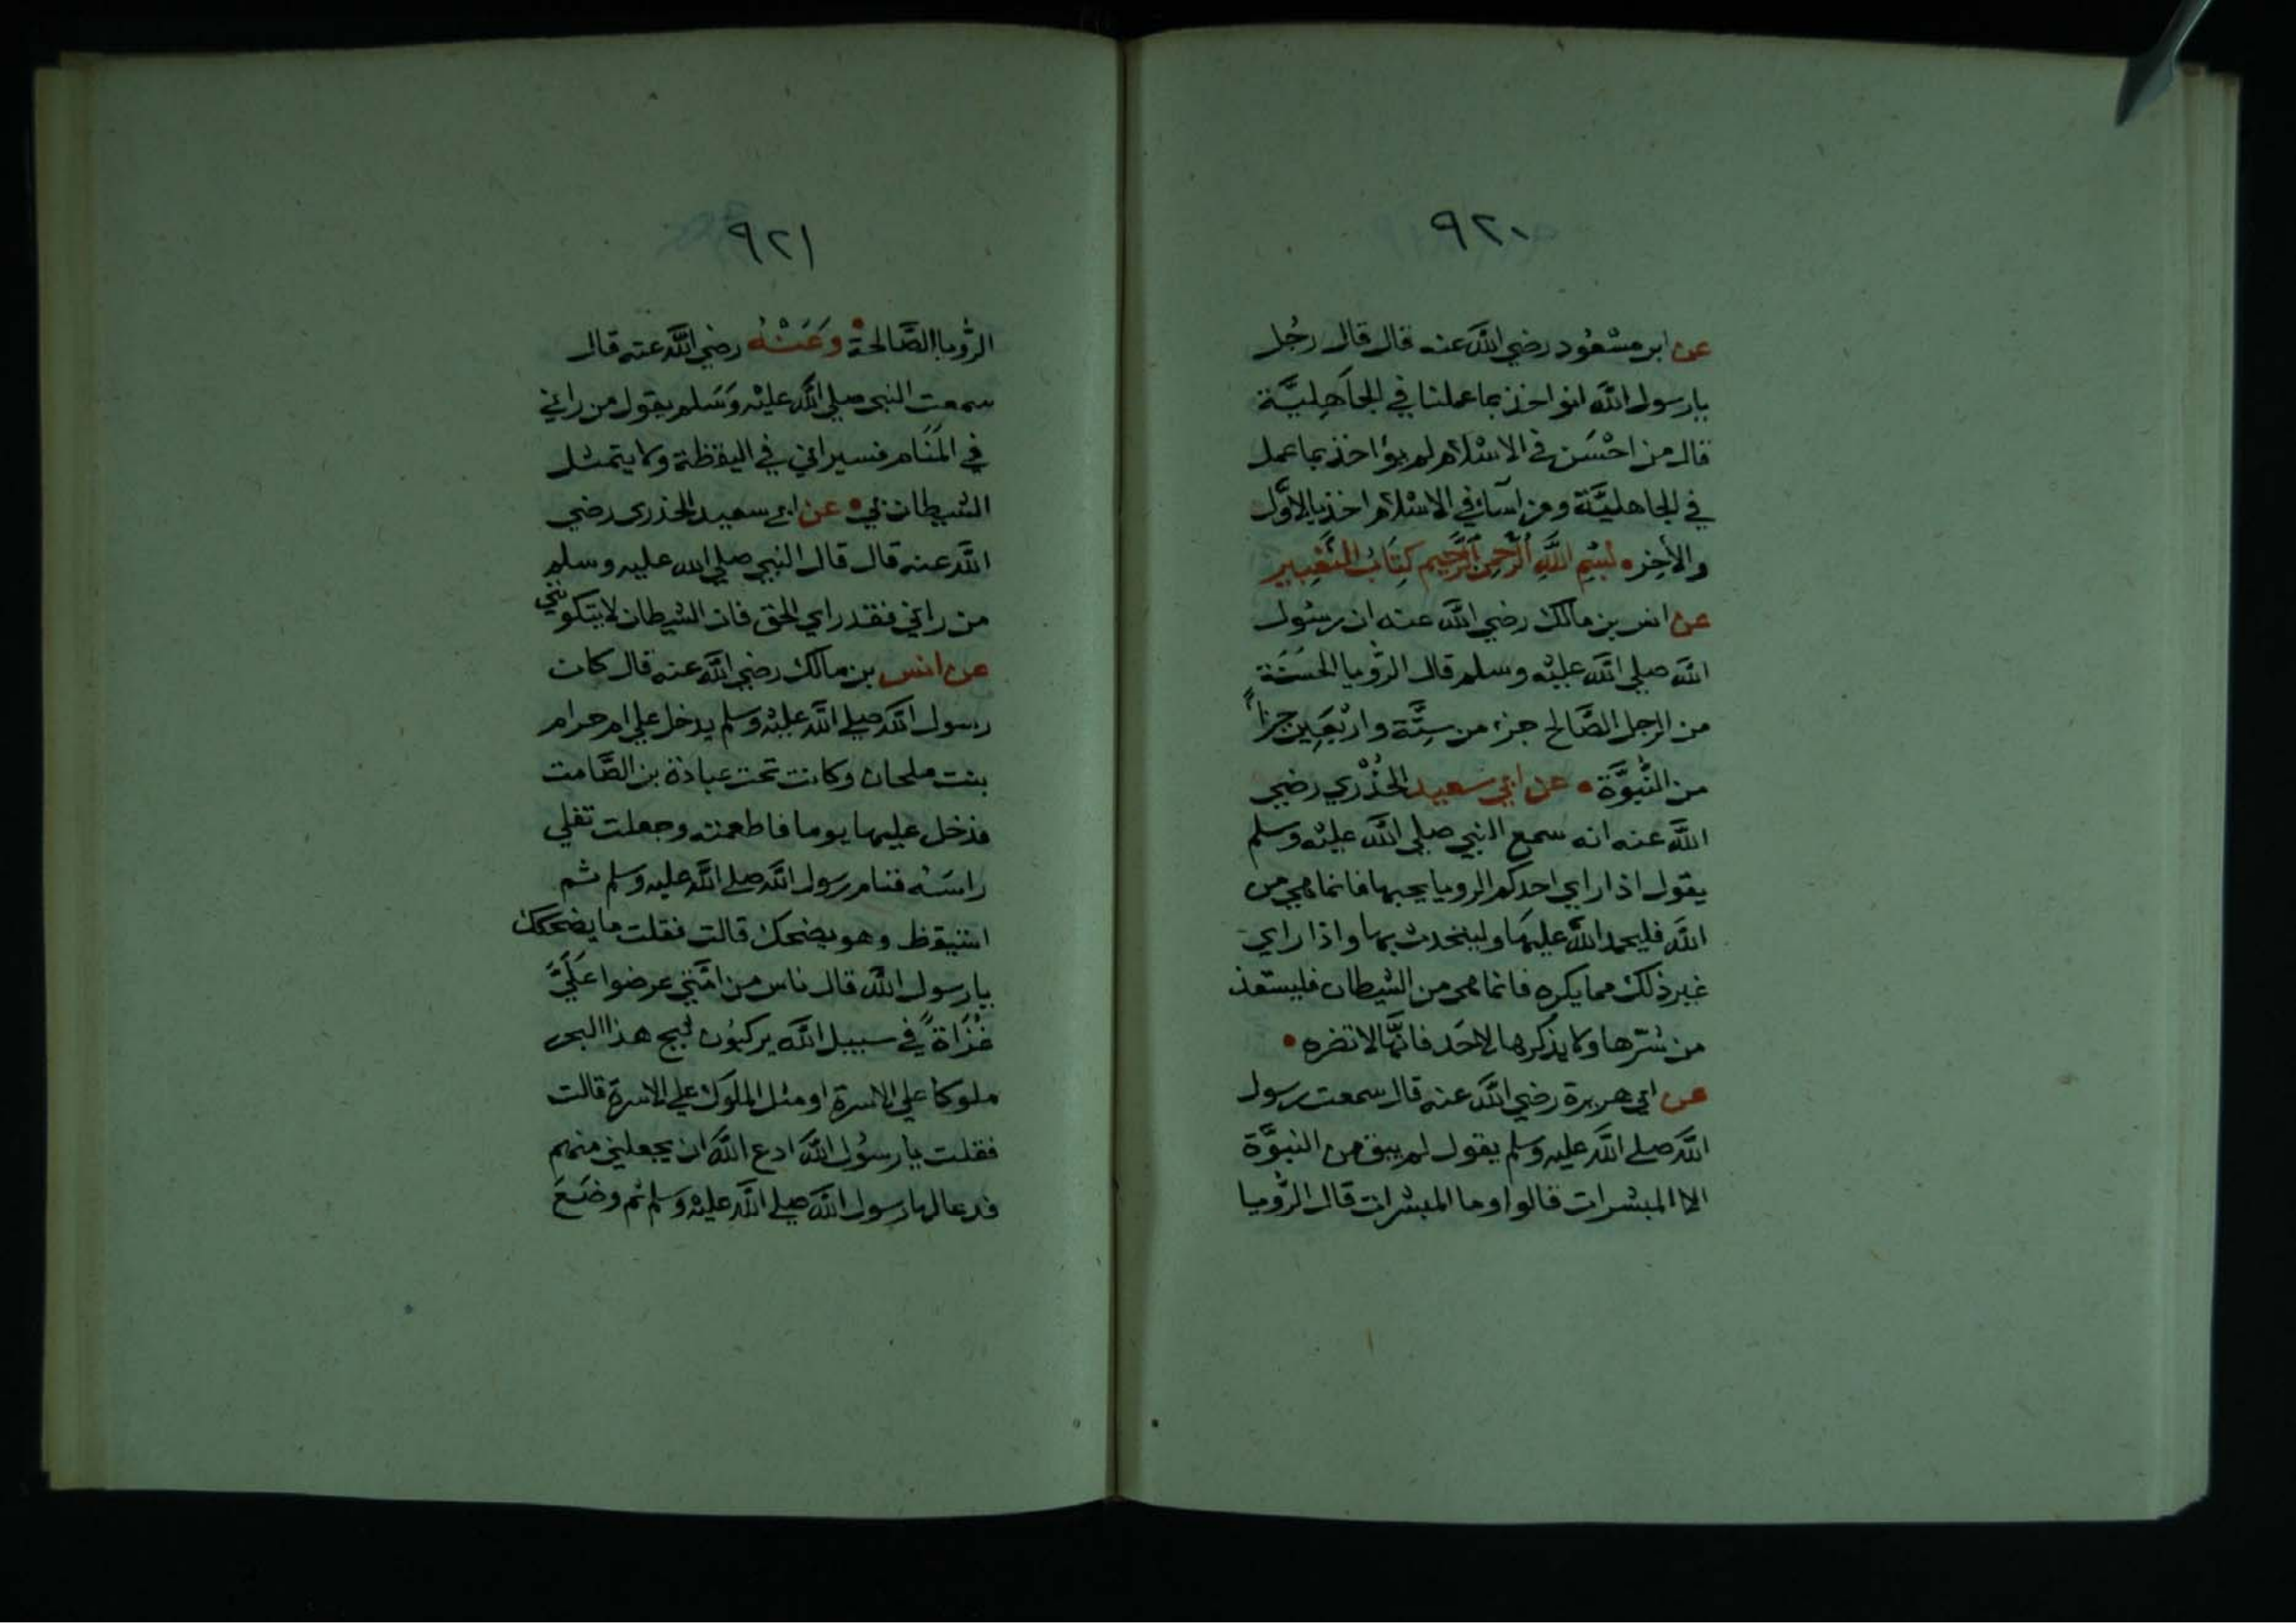 ٩٢٠
عن ابن مسْعُود رضي الله عنه قال قال رجُل
يا رسول الله انواخذ بما عملنا في الجاهِليَّة
قال من احْسَن في الاسْلام لم يؤاخذ بما عمل
في الجاهليَّة ومن اسآء في الاسْلام اخذ بالاوَّل
والأخِر • بسْمِ اللهِ الرَّحمنِ الرَّحيم كتَابُ التَّعْبير
عن انس بن مالك رضي الله عنه ان رسُول
الله صلي الله عليْه وسلم قال الرؤيا الحسَنَة
من الرجل الصَّالح جزء من ستَّة واربَعِين جزاً
من النُّبوَّة • عن ابي سعيد الخُدْري رضي
الله عنه انه سمع النبي صلي الله عليْه وسلم
يقول اذا راي احدكم الرويا يحبها فانما هي من
الله فليحمد الله عليهَا وليتحدث بها واذا راي
غير ذلك مما يكره فانما هي من الشيطان فليستعذ
من شرّها ولا يذكرها لاحَد فانَّها لا تضره •
عن ابي هريرة رضي الله عنه قال سمعت رسول
الله صلي الله عليه وسلم يقول لم يبق من النبوَّة
الا المبشرات قالوا وما المبشرات قال الرُّويا
٩٢١
الرُّويا الصَّالحة • وَعَنْهُ رضي الله عنه قال
سمعت النبي صلي الله عليْه وَسَلم يقول من راني
في المنَام فسيراني في اليقظة ولا يتمثل
الشيطان بي • عن ابي سعيد الخدري رضي
الله عنه قال قال النبي صلي الله عليه وسلم
من راني فقد راي الحق فان الشيطان لا يتكونني
عن انس بن مالك رضي الله عنه قال كان
رسول الله صلي الله عليْه وسلم يدخل علي ام حرام
بنت ملحان وكانت تحت عبادة بن الصَّامت
فدخل عليها يوما فاطعمته وجعلت تفلي
راسَه فنام رسول الله صلي الله عليه وسلم ثم
استيقظ وهو يضحك قالت فقلت ما يضحكك
يا رسول الله قال ناس من امَّتي عرضوا عَلَيَّ
غُزَاةً في سبيل الله يركبُون ثبج هذا البحر
ملوكا علي الاسرة او مثل الملوك علي الاسرة قالت
فقلت يا رسُول الله ادع الله ان يجعلني منهم
فدعا لها رسول الله صلي الله عليْه وَسلم ثم وضَعَ